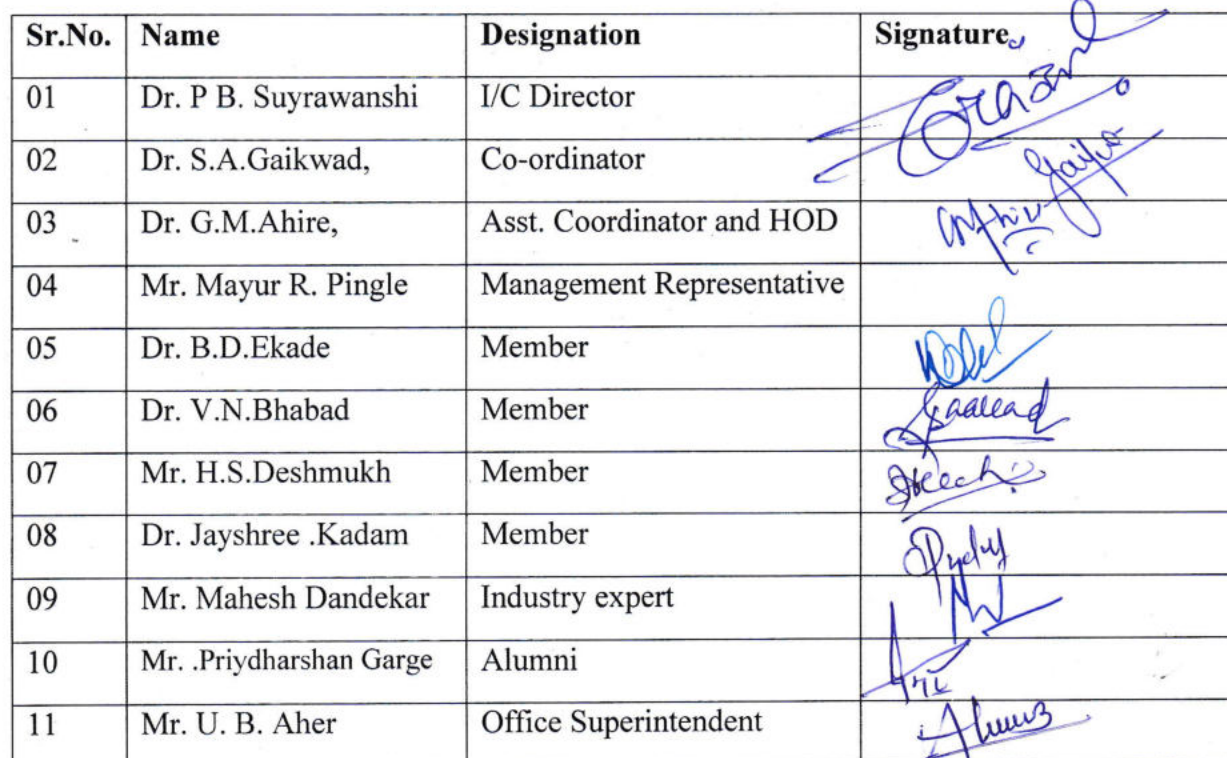 Sr.No. Name Designation Signature
01 Dr. P B. Suyrawanshi I/C Director
02 Dr. S.A.Gaikwad, Co-ordinator
03 Dr. G.M.Ahire, Asst. Coordinator and HOD
04 Mr. Mayur R. Pingle Management Representative
05 Dr. B.D.Ekade Member
06 Dr. V.N.Bhabad Member
07 Mr. H.S.Deshmukh Member
08 Dr. Jayshree .Kadam Member
09 Mr. Mahesh Dandekar Industry expert
10 Mr. .Priydharshan Garge Alumni
11 Mr. U. B. Aher Office Superintendent